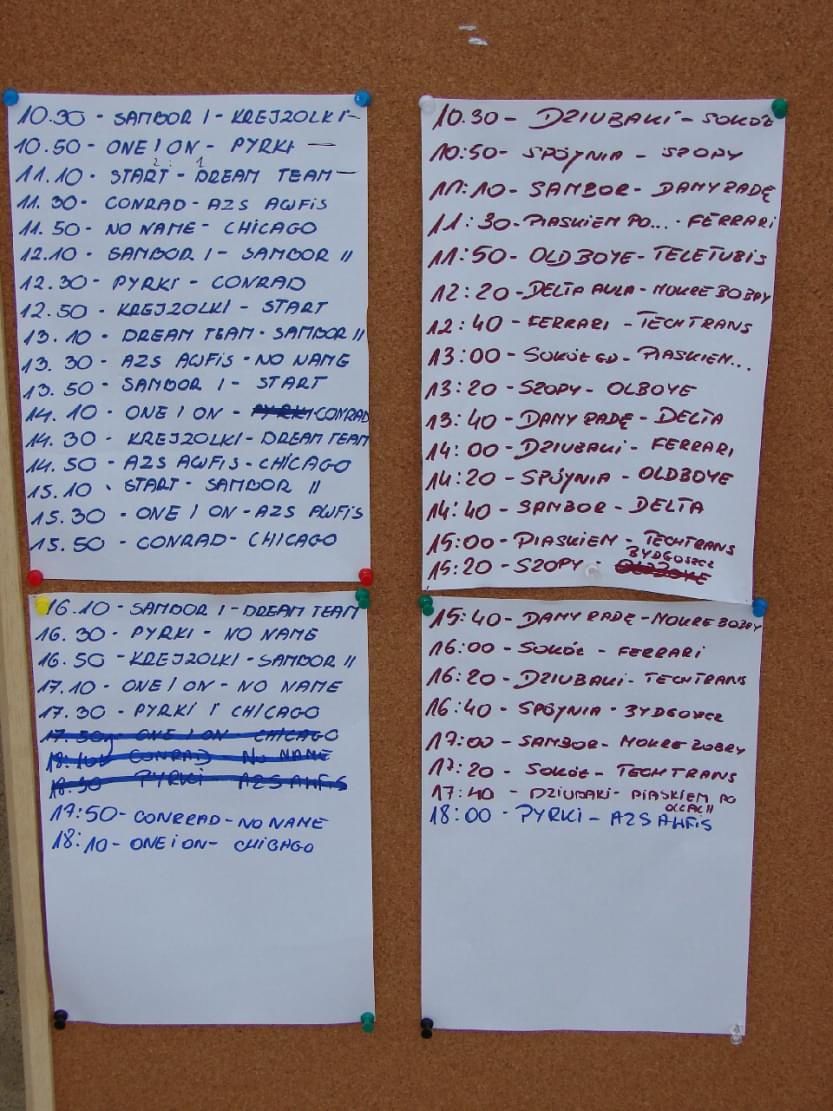 10.30 - SAMBOR I - KREJZOLKI -
10.50 - ONE I ON - PYRKI —
2 : 1
11.10 - START - DREAM TEAM —
11.30 - CONRAD - AZS AWFiS
11.50 - NO NAME - CHICAGO
12.10 - SAMBOR I - SAMBOR II
12.30 - PYRKI - CONRAD
12.50 - KREJZOLKI - START
13.10 - DREAM TEAM - SAMBOR II
13.30 - AZS AWFiS - NO NAME
13.50 - SAMBOR I - START
14.10 - ONE I ON - PYRKI CONRAD
14.30 - KREJZOLKI - DREAM TEAM
14.50 - AZS AWFiS - CHICAGO
15.10 - START - SAMBOR II
15.30 - ONE I ON - AZS AWFiS
15.50 - CONRAD - CHICAGO
16.10 - SAMBOR I - DREAM TEAM
16.30 - PYRKI - NO NAME
16.50 - KREJZOLKI - SAMBOR II
17.10 - ONE I ON - NO NAME
17.30 - PYRKI I CHICAGO
17.50 - ONE I ON - CHICAGO
18:10 CONRAD NO NAME
18:30 PYRKI - AZS AWFiS
17:50 - CONRRAD - NO NAME
18:10 - ONE i ON - CHIBAGO
10.30 - DZIUBAKI - SOKÓŁ
10:50 - SPÓJNIA - SZOPY
11:10 - SAMBOR - DAMY RADĘ
11:30 - PIASKIEM PO... - FERRARI
11:50 - OLD BOYE - TELETUBIS
12:20 - DELTA AULA - MOKRE BOBRY
12:40 - FERRARI - TECHTRANS
13:00 - SOKÓŁ GD - PIASKIEM...
13:20 - SZOPY - OLBOYE
13:40 - DAMY RADĘ - DELTA
14:00 - DZIUBAKI - FERRARI
14:20 - SPÓJNIA - OLDBOYE
14:40 - SAMBOR - DELTA
15:00 - PIASKIEM - TECHTRANS
15:20 - SZOPY - OLDBOYE BYDGOSZCZ
15:40 - DAMY RADĘ - MOKRE BOBRY
16:00 - SOKÓŁ - FERRARI
16:20 - DZIUBAKI - TECHTRANS
16:40 - SPÓJNIA - BYDGOSZCZ
17:00 - SAMBOR - MOKRE BOBRY
17:20 - SOKÓŁ - TECHTRANS
17:40 - DZIUBAKI - PIASKIEM PO
OCZACH
18:00 - PYRKI - AZS AWFiS